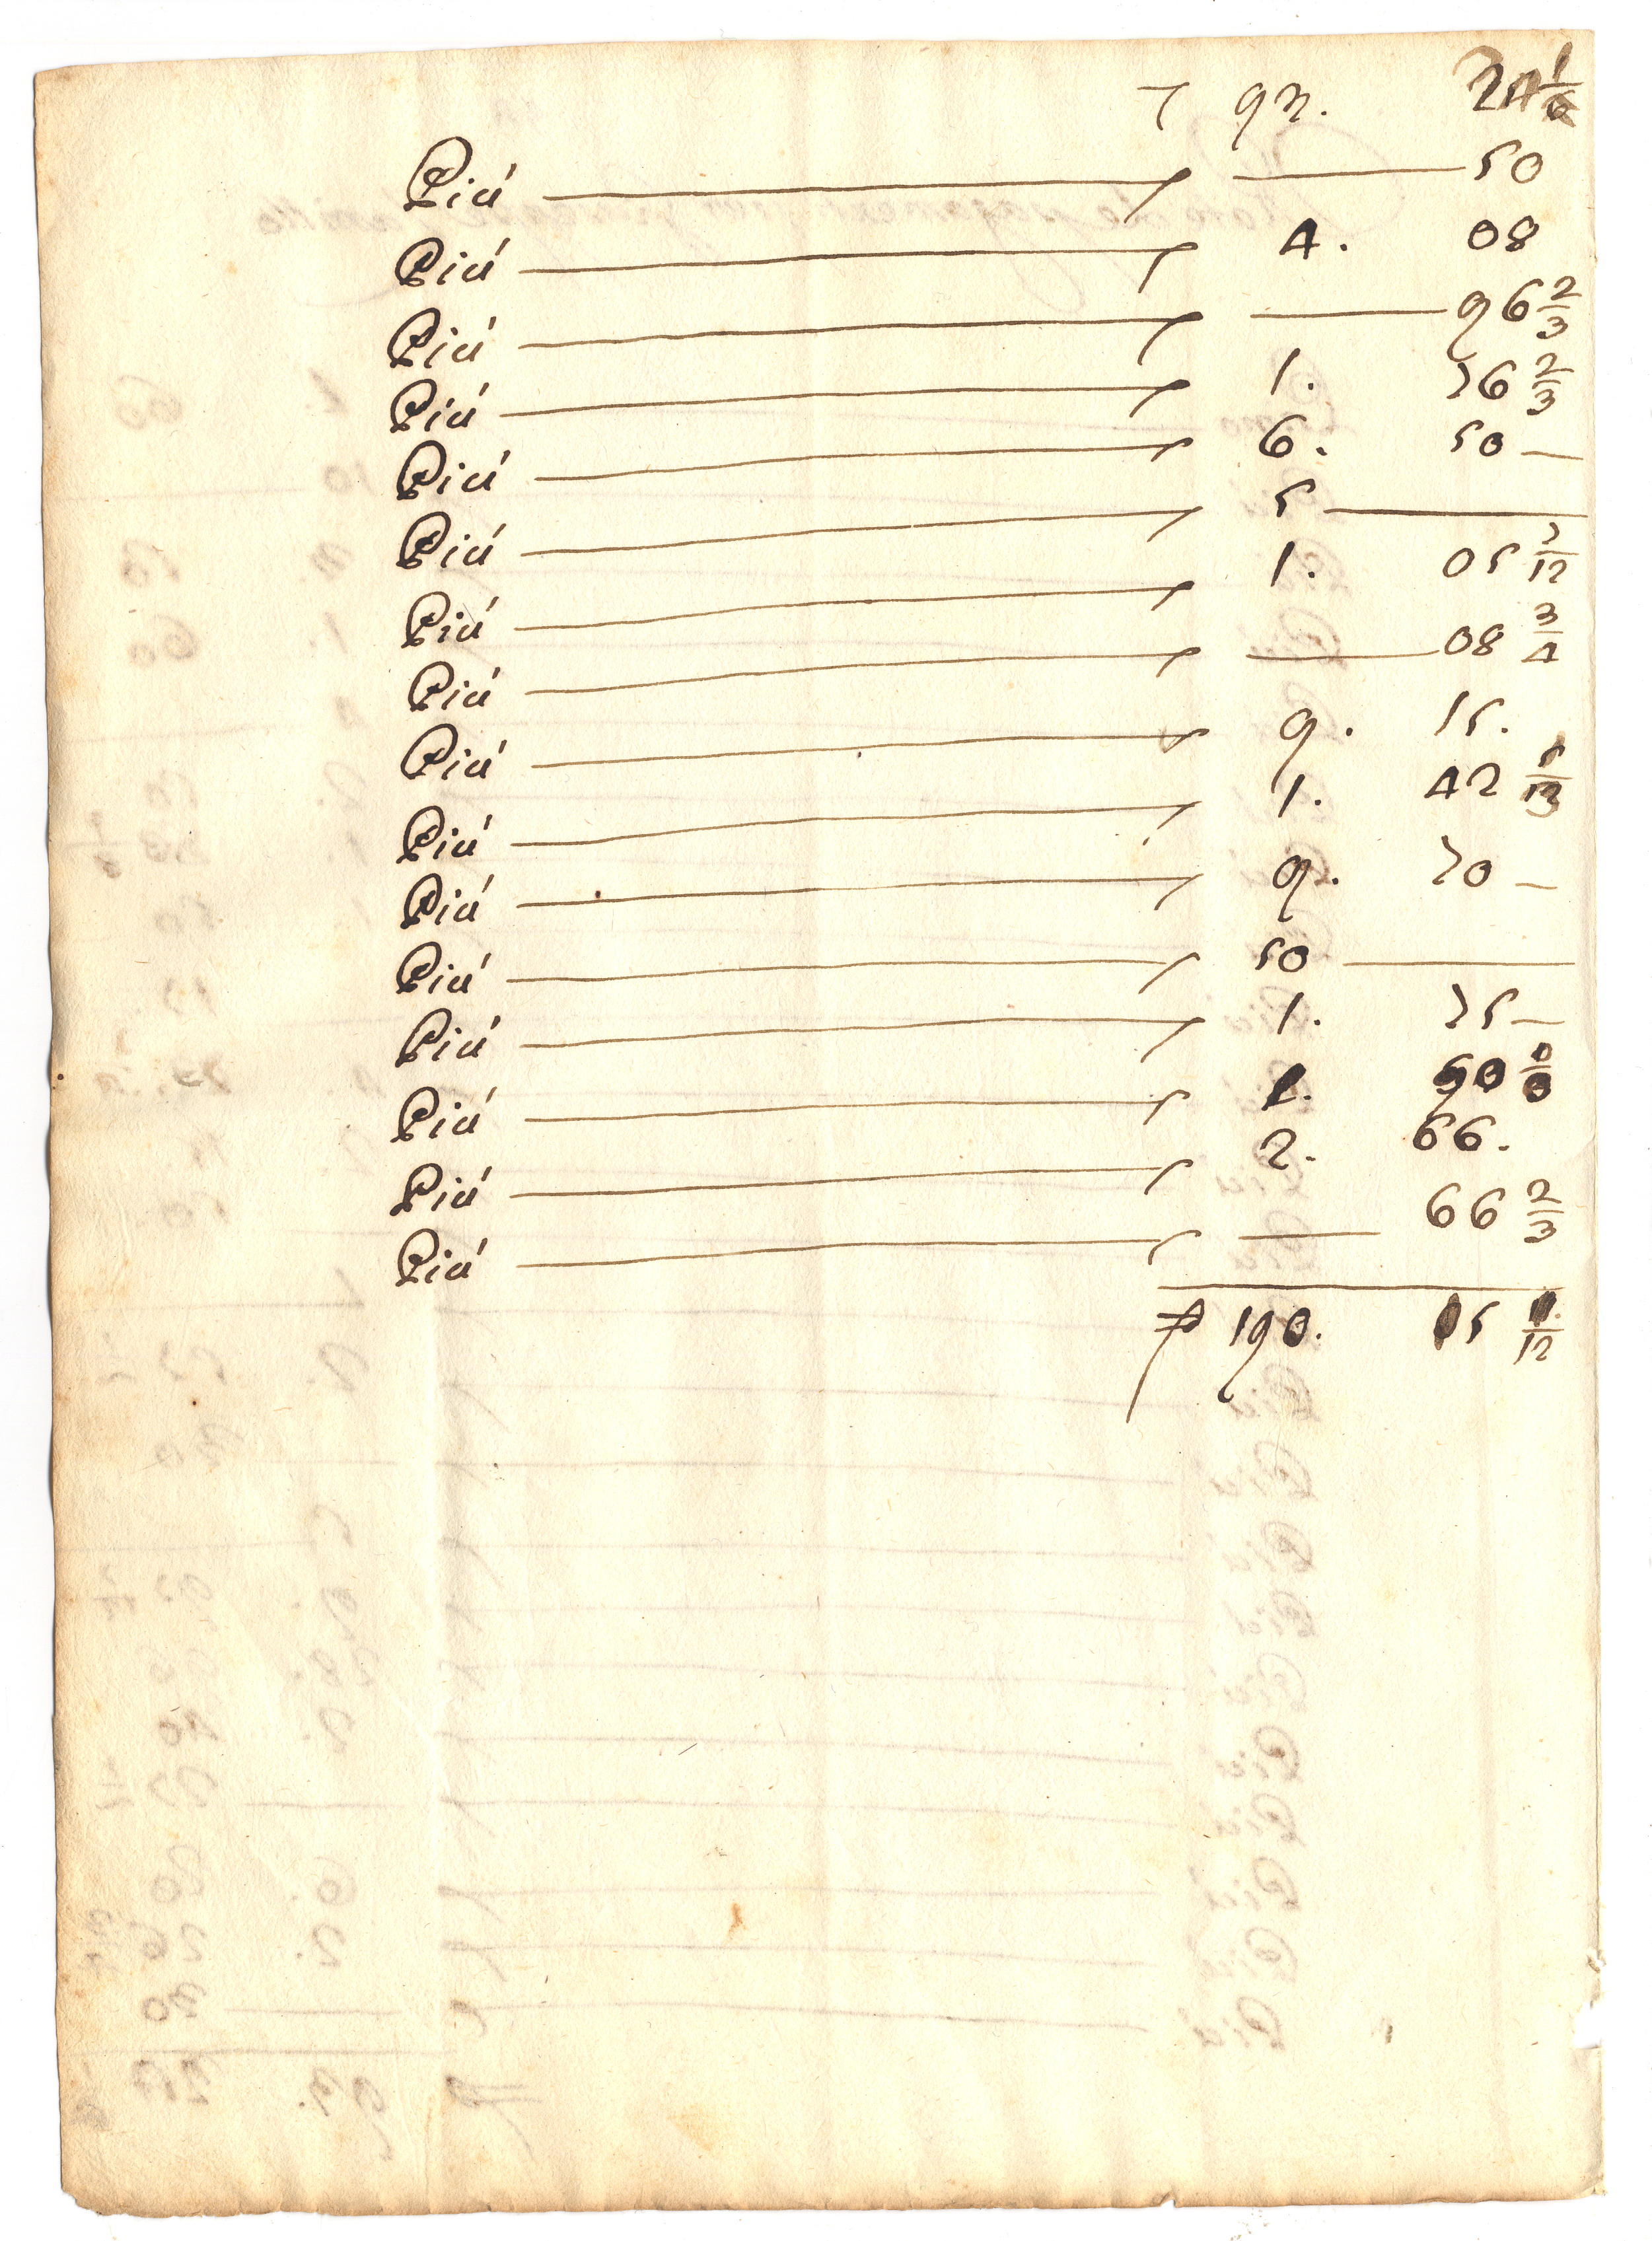 93. 24 1/6
Più 50
Più 4. 08
Più 96 2/3
Più 1. 76 2/3
Più 6. 50
Più 5
Più 1. 05 7/12
Più 08 3/4
Più 9. 15.
Più 1. 42
Più 9. 70
Più 50
Più 1. 75
Più
Più 2. 66.
Più 66 2/3
190.